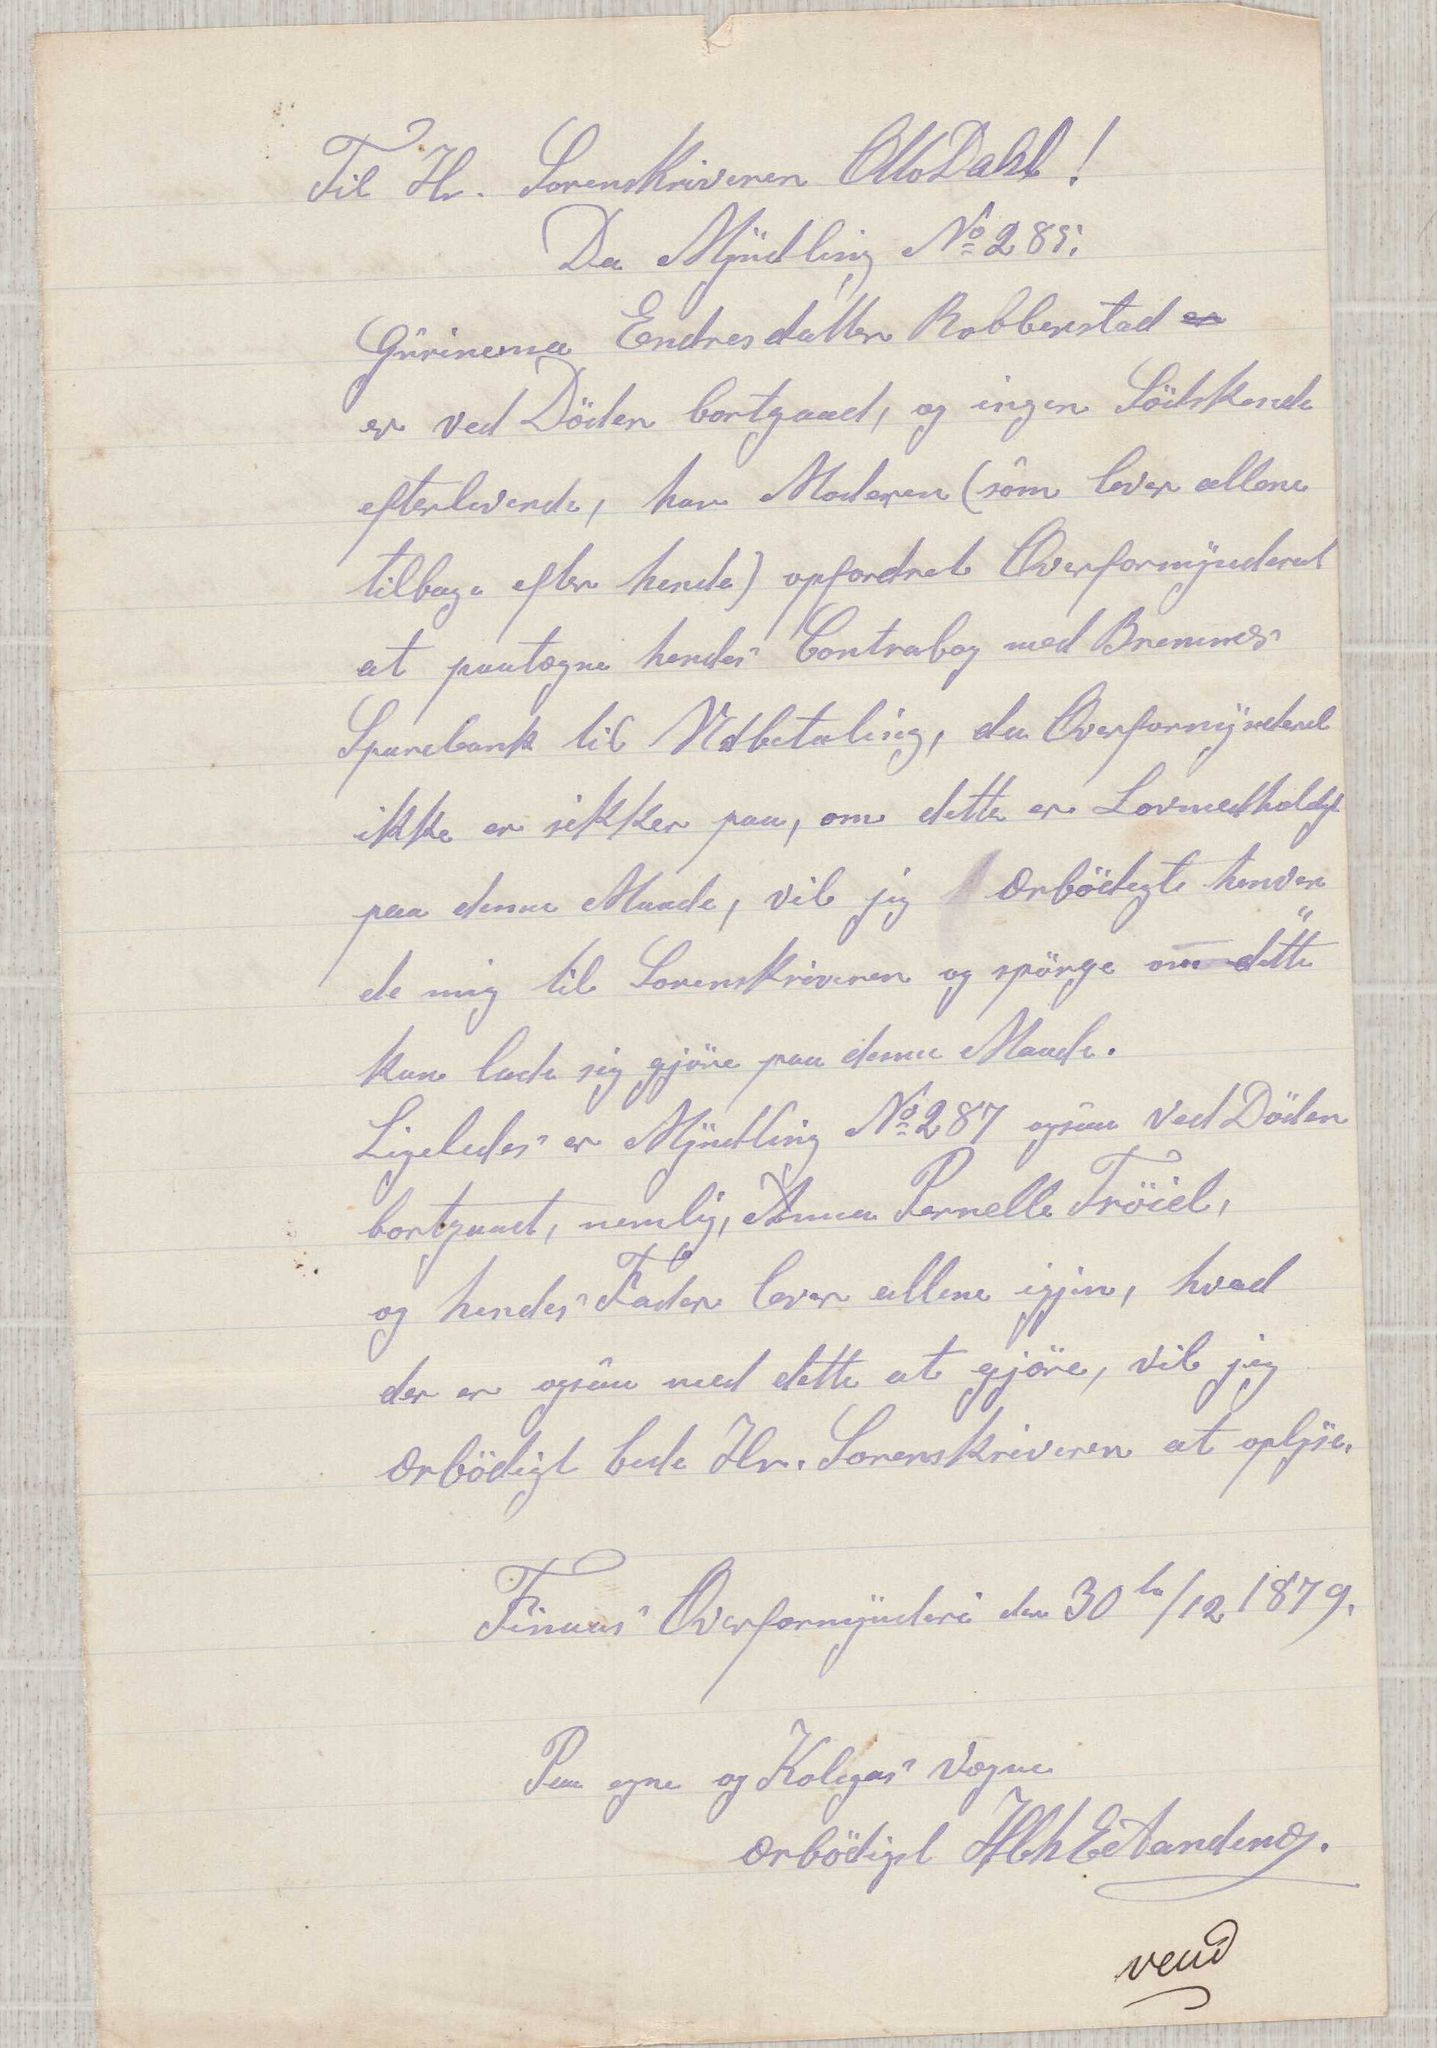 Til Hr. Sorenskriveren Otto Dahl!
Da Mÿndling No 285:
Gurinema Endresdatter Robberstad er
er ved Döden bortgaaed, og ingen Södskende
efterlevende, har Moderen (som lever allene
tilbage efter hende) opfordret Overformÿnderiet
at paategne hendes Contrabog med Bremnes
Sparebank til Udbetaling, da Overformÿnderiet
ikke er sikker paa, om dette er Lovmedholdigt
paa denne Maade, vil jeg ærbödigts henven
de mig til Sorenskriveren og spörge om dette
kan lade sig gjöre paa denne Maade.
Ligeledes er Mÿndling No 287 ogsaa ved Döden
bortgaaet, nemlig, Anna Pernelle Tröiel,
og hendes Fader lever allene igjen, hvad
der er ogsaa med dette at gjöre, vil jeg
ærbödigt bede Hr. Sorenskriveren at oplÿse.
Finnaas Overformÿnderi den 30te/12 1879.
Paa egne og Kolegas Vegne
ærbödigst Aandenæs.
vend